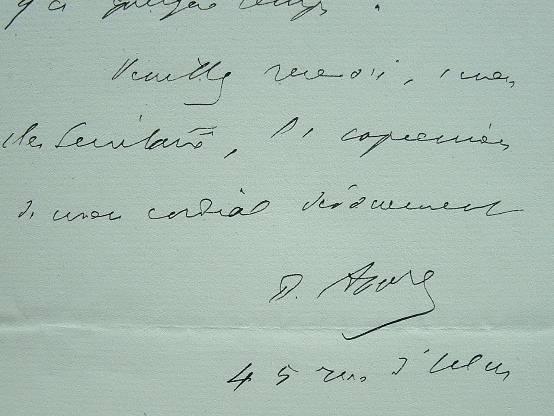 y a quelque temps.
Veuillez recevoir, mon
cher Secrétaire, l'expression
de mon cordial dévouement
45 rue d'Ulm